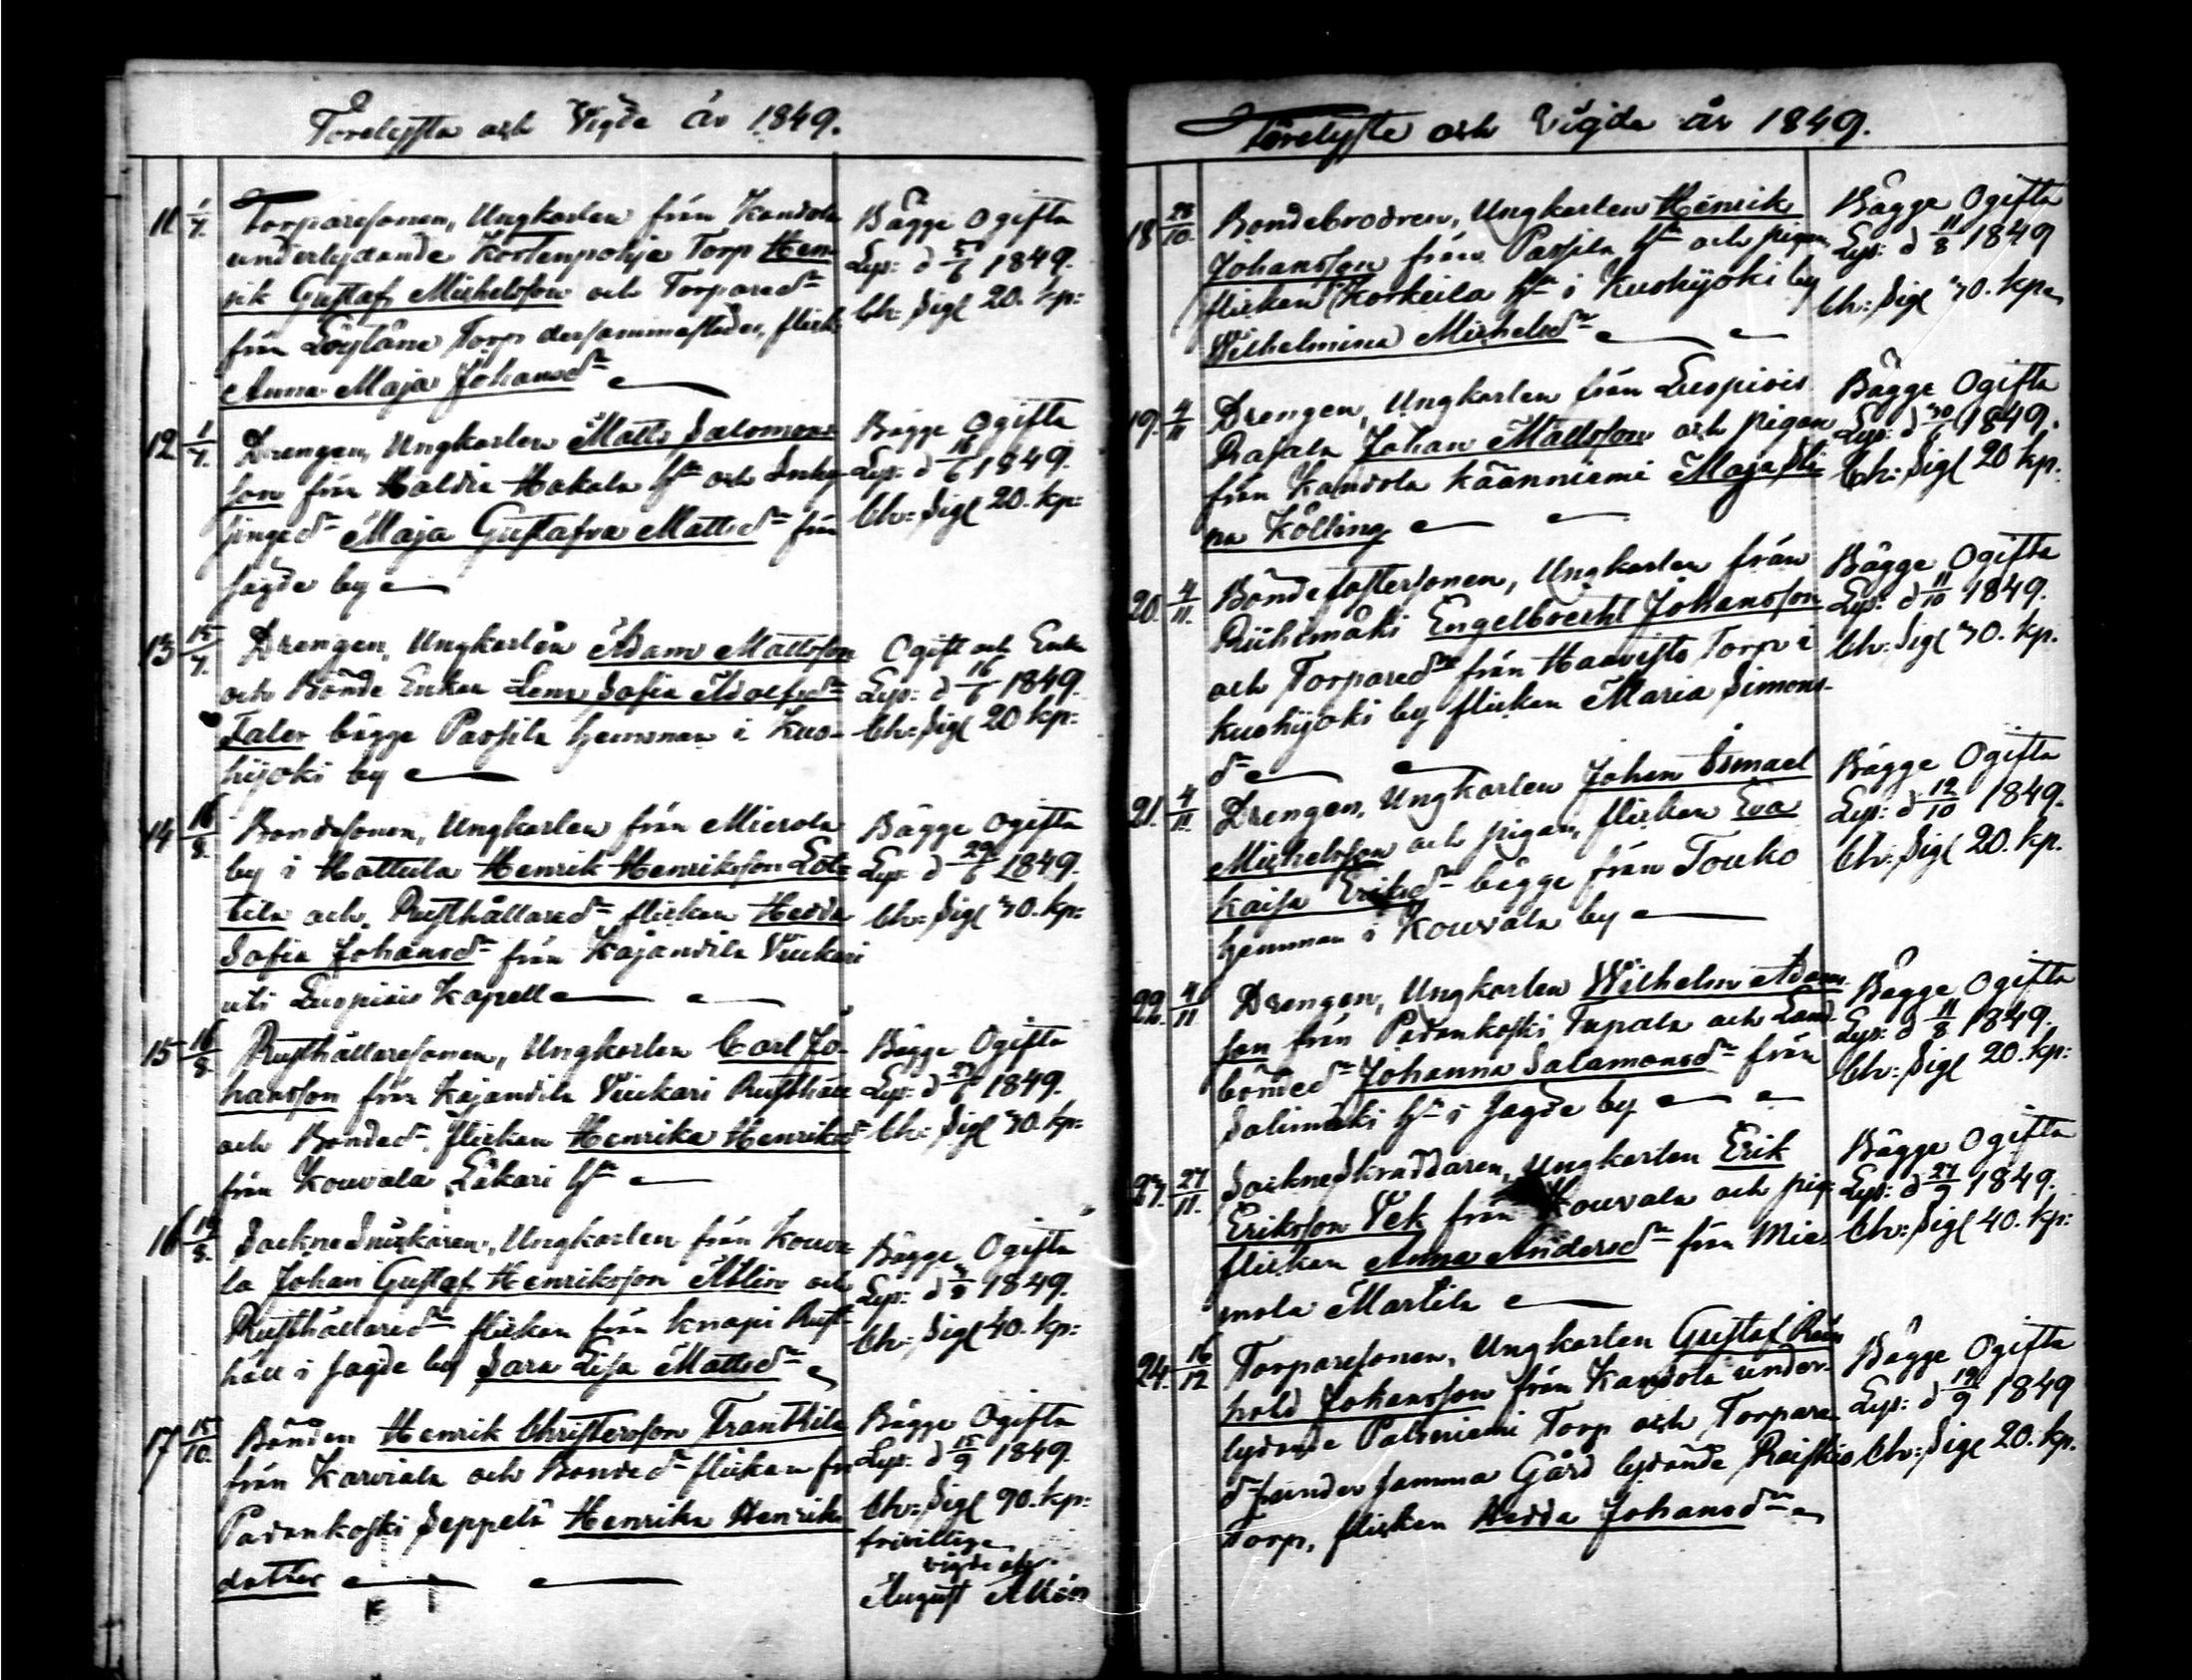 Förelyste och Vigde år 1849.
11 1/7. Torparesonen, Ungkarlen från Kandola
underlydande Kortenpohja Torp Hen-
rik Gustaf Michelsson och Torpared:r
från Löytäne Torp dersammastädes, flick:
Anna Maja Johansd:r
Bägge Ogifta
Lys: d 1849.
Ch: Sigl 20. kp:
12 1/7. Drengen, Ungkarlen Matts Salomons
son från Haldia Hakala H:n och Inhy-
singed:r Maja Gustafva Mattsd:r från
sagde by
Bägge Ogifta
Lys: d 16/6 1849.
Ch: Sigl 20. kp:
13 15/7. Drengen, Ungkarlen Adam Mattsson
och Bonde Enkan Lena Sofia Adolfsd:r
Taler bägge Passila hemman i Kuo-
hijoki by
Ogift och Enka
Lys: d 16/6 1849.
Ch: Sigl 20 kp:
14 16/8. Bondesonen, Ungkarlen från Mierola
by i Hattula Henrik Henriksson Lot-
tila och Rusthållared:r flickan Hedda
Sofia Johansd:r från Kajandila Viukari
uti Luopiois Kapell
Bägge Ogifta
Lys: d 29/6 1849.
Ch: Sigl 30. kp:
15 16/8. Rusthållaresonen, Ungkarlen Carl Jo-
hansson från Kajandila Viukari Rusthåll
och Bonded:r flickan Henrika Henriksd:r
från Kouvala Eskari H:n
Bägge Ogifta
Lys: d 1849.
Ch: Sigl 30. kp:
16 19/8. Sockne Snickaren, Ungkarlen från Kouva-
la Johan Gustaf Henriksson Ahlin och
Rusthållared:r flickan från Knapi Rust-
håll i sagde by Sara Lisa Mattsd:r
Bägge Ogifta
Lys: d 1849.
Ch: Sigl 40. kp:
17 15/10. Bonden Henrik Christersson Tranthila
från Karviala och Bonded:r flickan från
Padankoski Seppelä Henrika Henriks
dotter
Bägge Ogifta
Lys: d 15/9 1849.
Ch: Sigl 90. kp:
frivillige
vigde af
August Allén
Förelyste och Vigde år 1849.
18 28/10. Bondebrodren, Ungkarlen Henrik
Johansson från Passila H:n och pigan,
flickan Korkeila H:n i Kuohijoki by
Wilhelmina Michelsd:r
Bägge Ogifta
Lys: d 11/8 1849
Ch: Sigl 30. kp:
19. 4/11 Drengen, Ungkarlen från Luopiois
Rasala Johan Mattsson och pigan
från Kandola Käänniemi Maja Sti-
na Kölling
Bägge Ogifta
Lys: d 1849.
Ch: Sigl 20 kp.
20. 4/11. Bondefostersonen, Ungkarlen från
Riihimäki Engelbrecht Johansson
och Torpared:r från Haavisto Torp i
Kuohijoki by flickan Maria Simons-
d:r
Bägge Ogifta
Lys: d 11/10 1849.
Ch: Sigl 30. kp.
21. 4/11. Drengen, Ungkarlen Johan Ismael
Michelsson och pigan, flickan Eva
Kaisa Eriksd:r bägge från Touko
hemman i Kouvala by
Bägge Ogifta
Lys: d 12/10 1849.
Ch: Sigl 20. kp.
22. 4/11 Drengen, Ungkarlen Wilhelm Adams
son från Padankoski Tupala och Land-
bonded:r Johanna Salamonsd:r från
Salimäki H:n i sagde by
Bägge Ogifta
Lys: d 11/8 1849.
Ch: Sigl 20. kp:
23. 27/11. Sockneskräddaren, Ungkarlen Erik
Eriksson Vek från Kouvala och pig:
flickan Anna Andersd:r från Mie-
mola Martila
Bägge Ogifta
Lys: d 27/9 1849.
Ch: Sigl 40. kp:
24. 16/12 Torparesonen, Ungkarlen Gustaf Rein
hold Johansson från Kandola under-
lydande Palsniemi Torp och Torpare
d:r under samma Gård lydande Raiskio
Torp, flickan Hedda Johansd:r
Bägge Ogifta
Lys: d 19/9 1849
Ch: Sigl 20. kp.